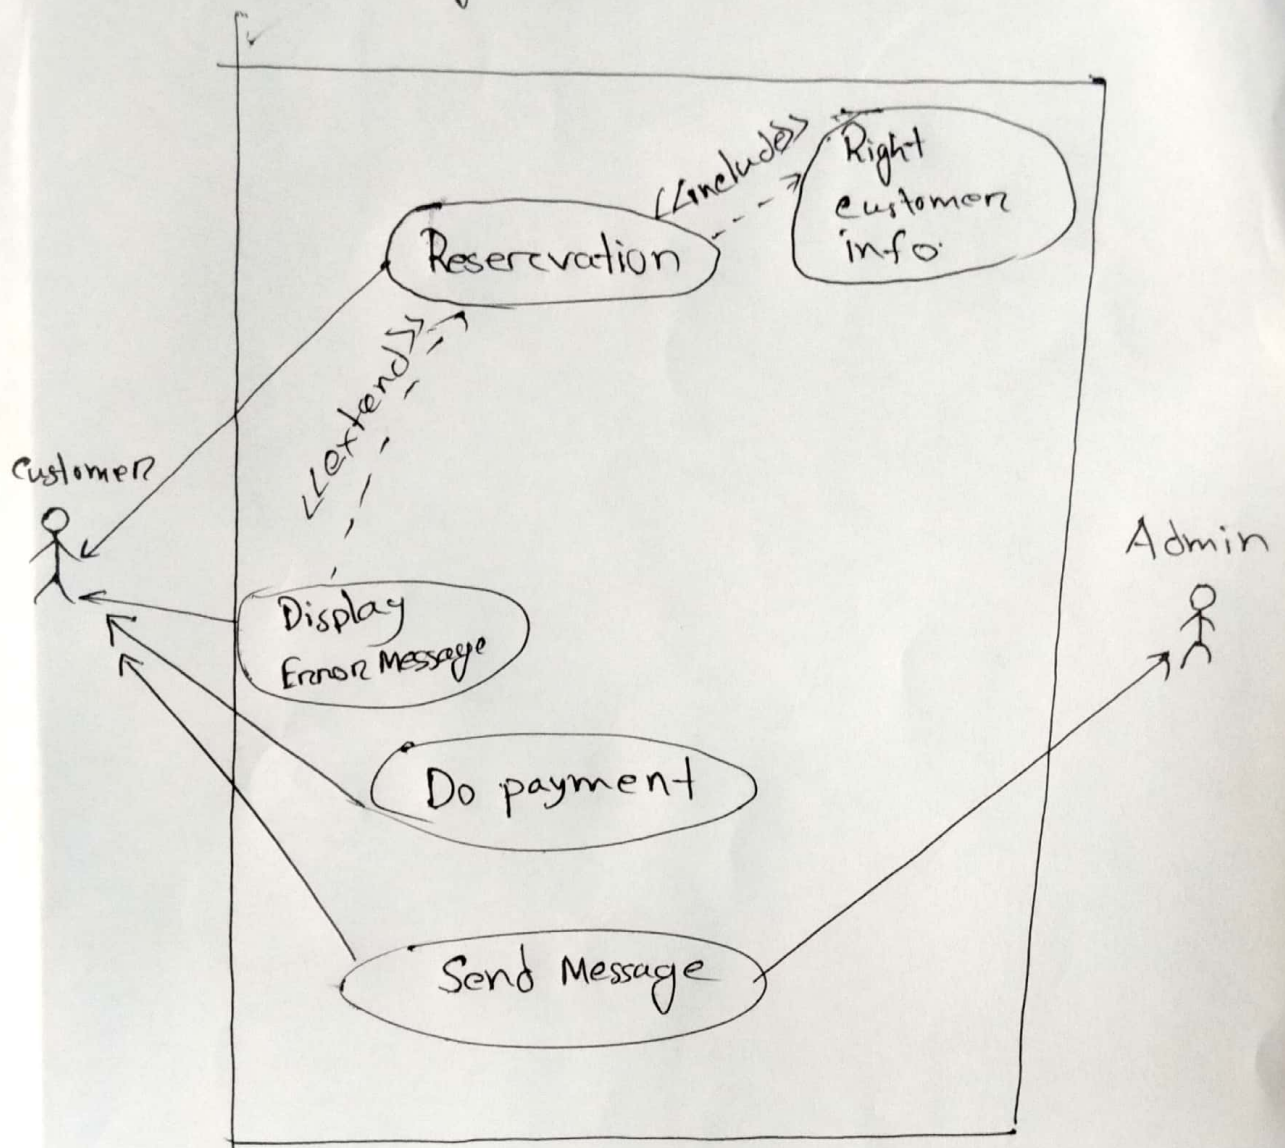 <<include>>
Right
customer
info
Reservation
<<extend>>
Customer
Admin
Display
Error Message
Do payment
Send Message